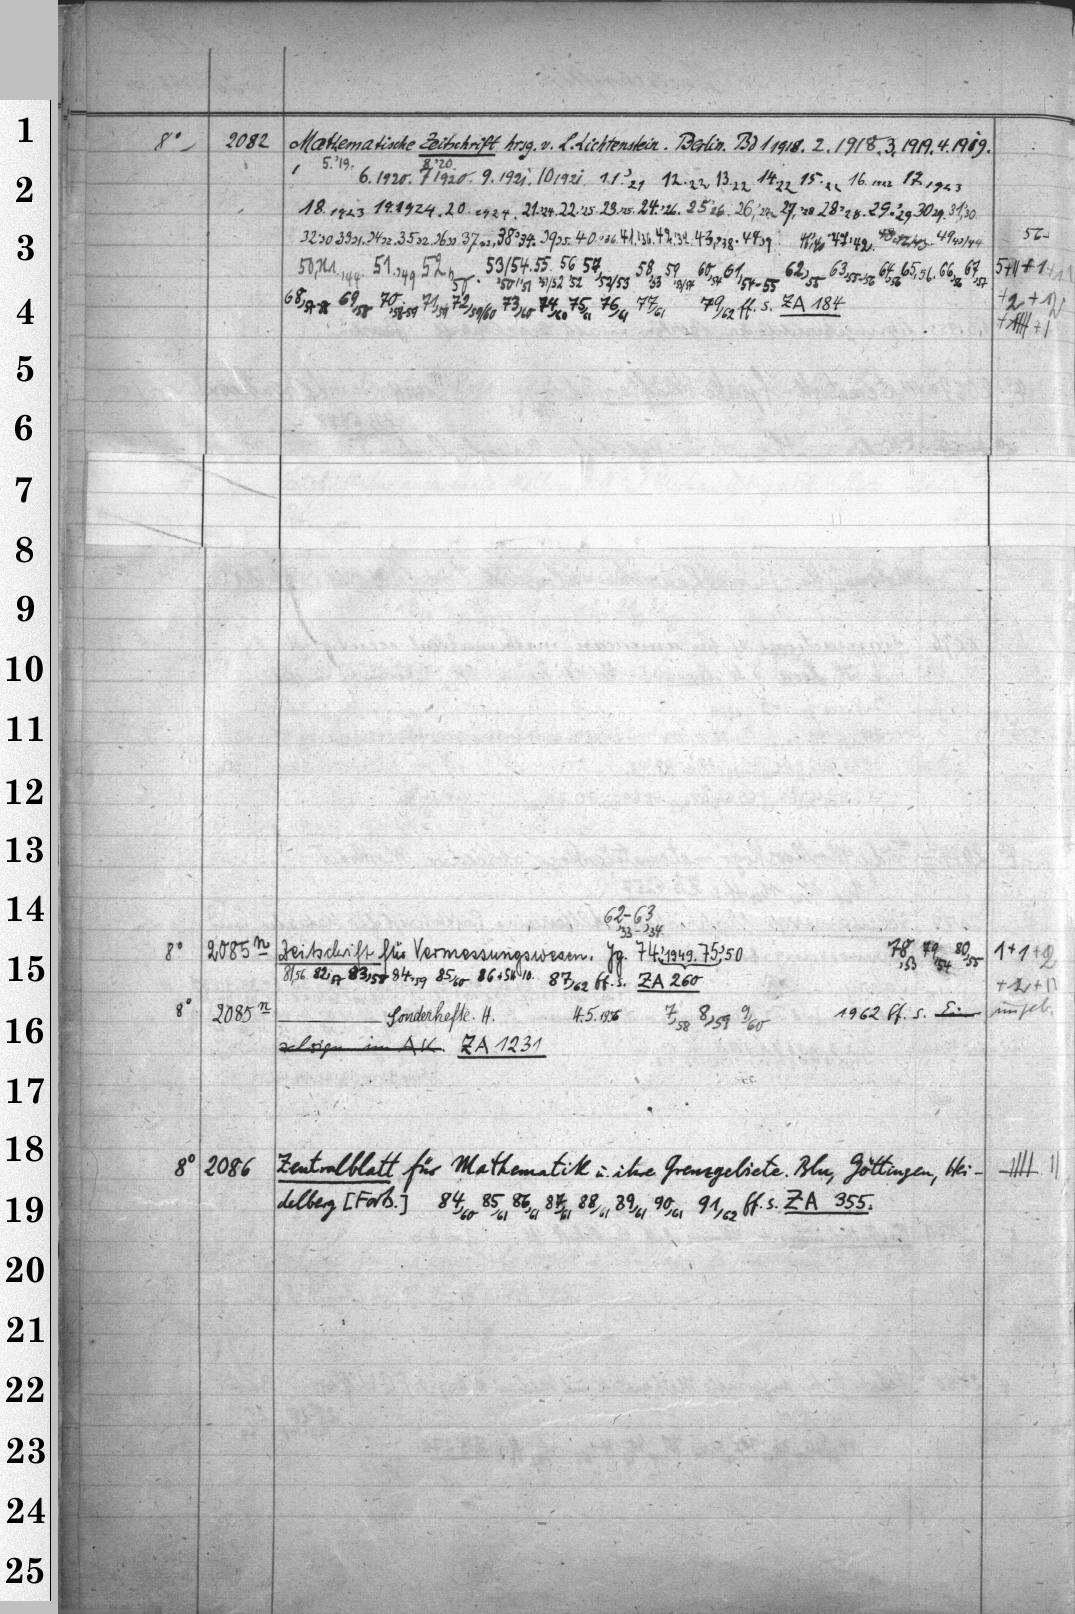 1
8° 2082 Mathematische Zeitschrift hrsg. v. L. Lichtenstein. Berlin. Bd 1 1918. 2. 1918. 3. 1919. 4. 1919.
5.'19. 8.'20.
2
6. 1920. 7 1920. 9. 1921. 10 1921 11.'21 12.22 13.22 14.22 15.22 16.1922 17.1923
18.1923 19.1924. 20.1924. 21.'24. 22.'25. 23.'25. 24.'26. 25'26. 26,'27 27,'28 28'28. 29.'29 30'29. 31,'30
3
32'30 33'31. 34'32. 35'32. 36'33. 37'33, 38'34. 39'35. 40.'36. 41,'36. 42,'37. 43,'38. 44'39 47,'42. 49 43/44 56
50, 51,'49 52,50. 53/54. 55 56 57, 58, 59 60,54 61,54-55 62,55 63,55-56 64,56 65,56. 66,56 67,57 5+
'50/'51 '51/'52 '52 '52/53 '53 '53/54
4
68,57-58 69,58 70,58-59 71,59 72,59/60 73,60 74,60 75,61 76,61 77,61 79,62 ff. s. ZA 184 +2
5
6
7
8
9
10
11
12
13
14
62-63
'33-'34
8° 2085 n Zeitschrift für Vermessungswesen. Jg. 74,1949. 75,'50 78,53 79,54 80,55 1+1+2
15
81,56 82,57 83,58 84,59 85,60 86+SH 10. 87,62 ff. s. ZA 260
8° 2085 n Sonderhefte. H. H.5.1956 7,58 8,59 9,60 1962 ff. s. ungeb.
16
im AK. ZA 1231
17
18
8° 2086 Zentralblatt für Mathematik u. ihre Grenzgebiete. Bln, Göttingen, Hei-
19
delberg [Forts.] 84,60 85,61 86,61 87,61 88,61 89,61 90,61 91,62 ff. s. ZA 355.
20
21
22
23
24
25